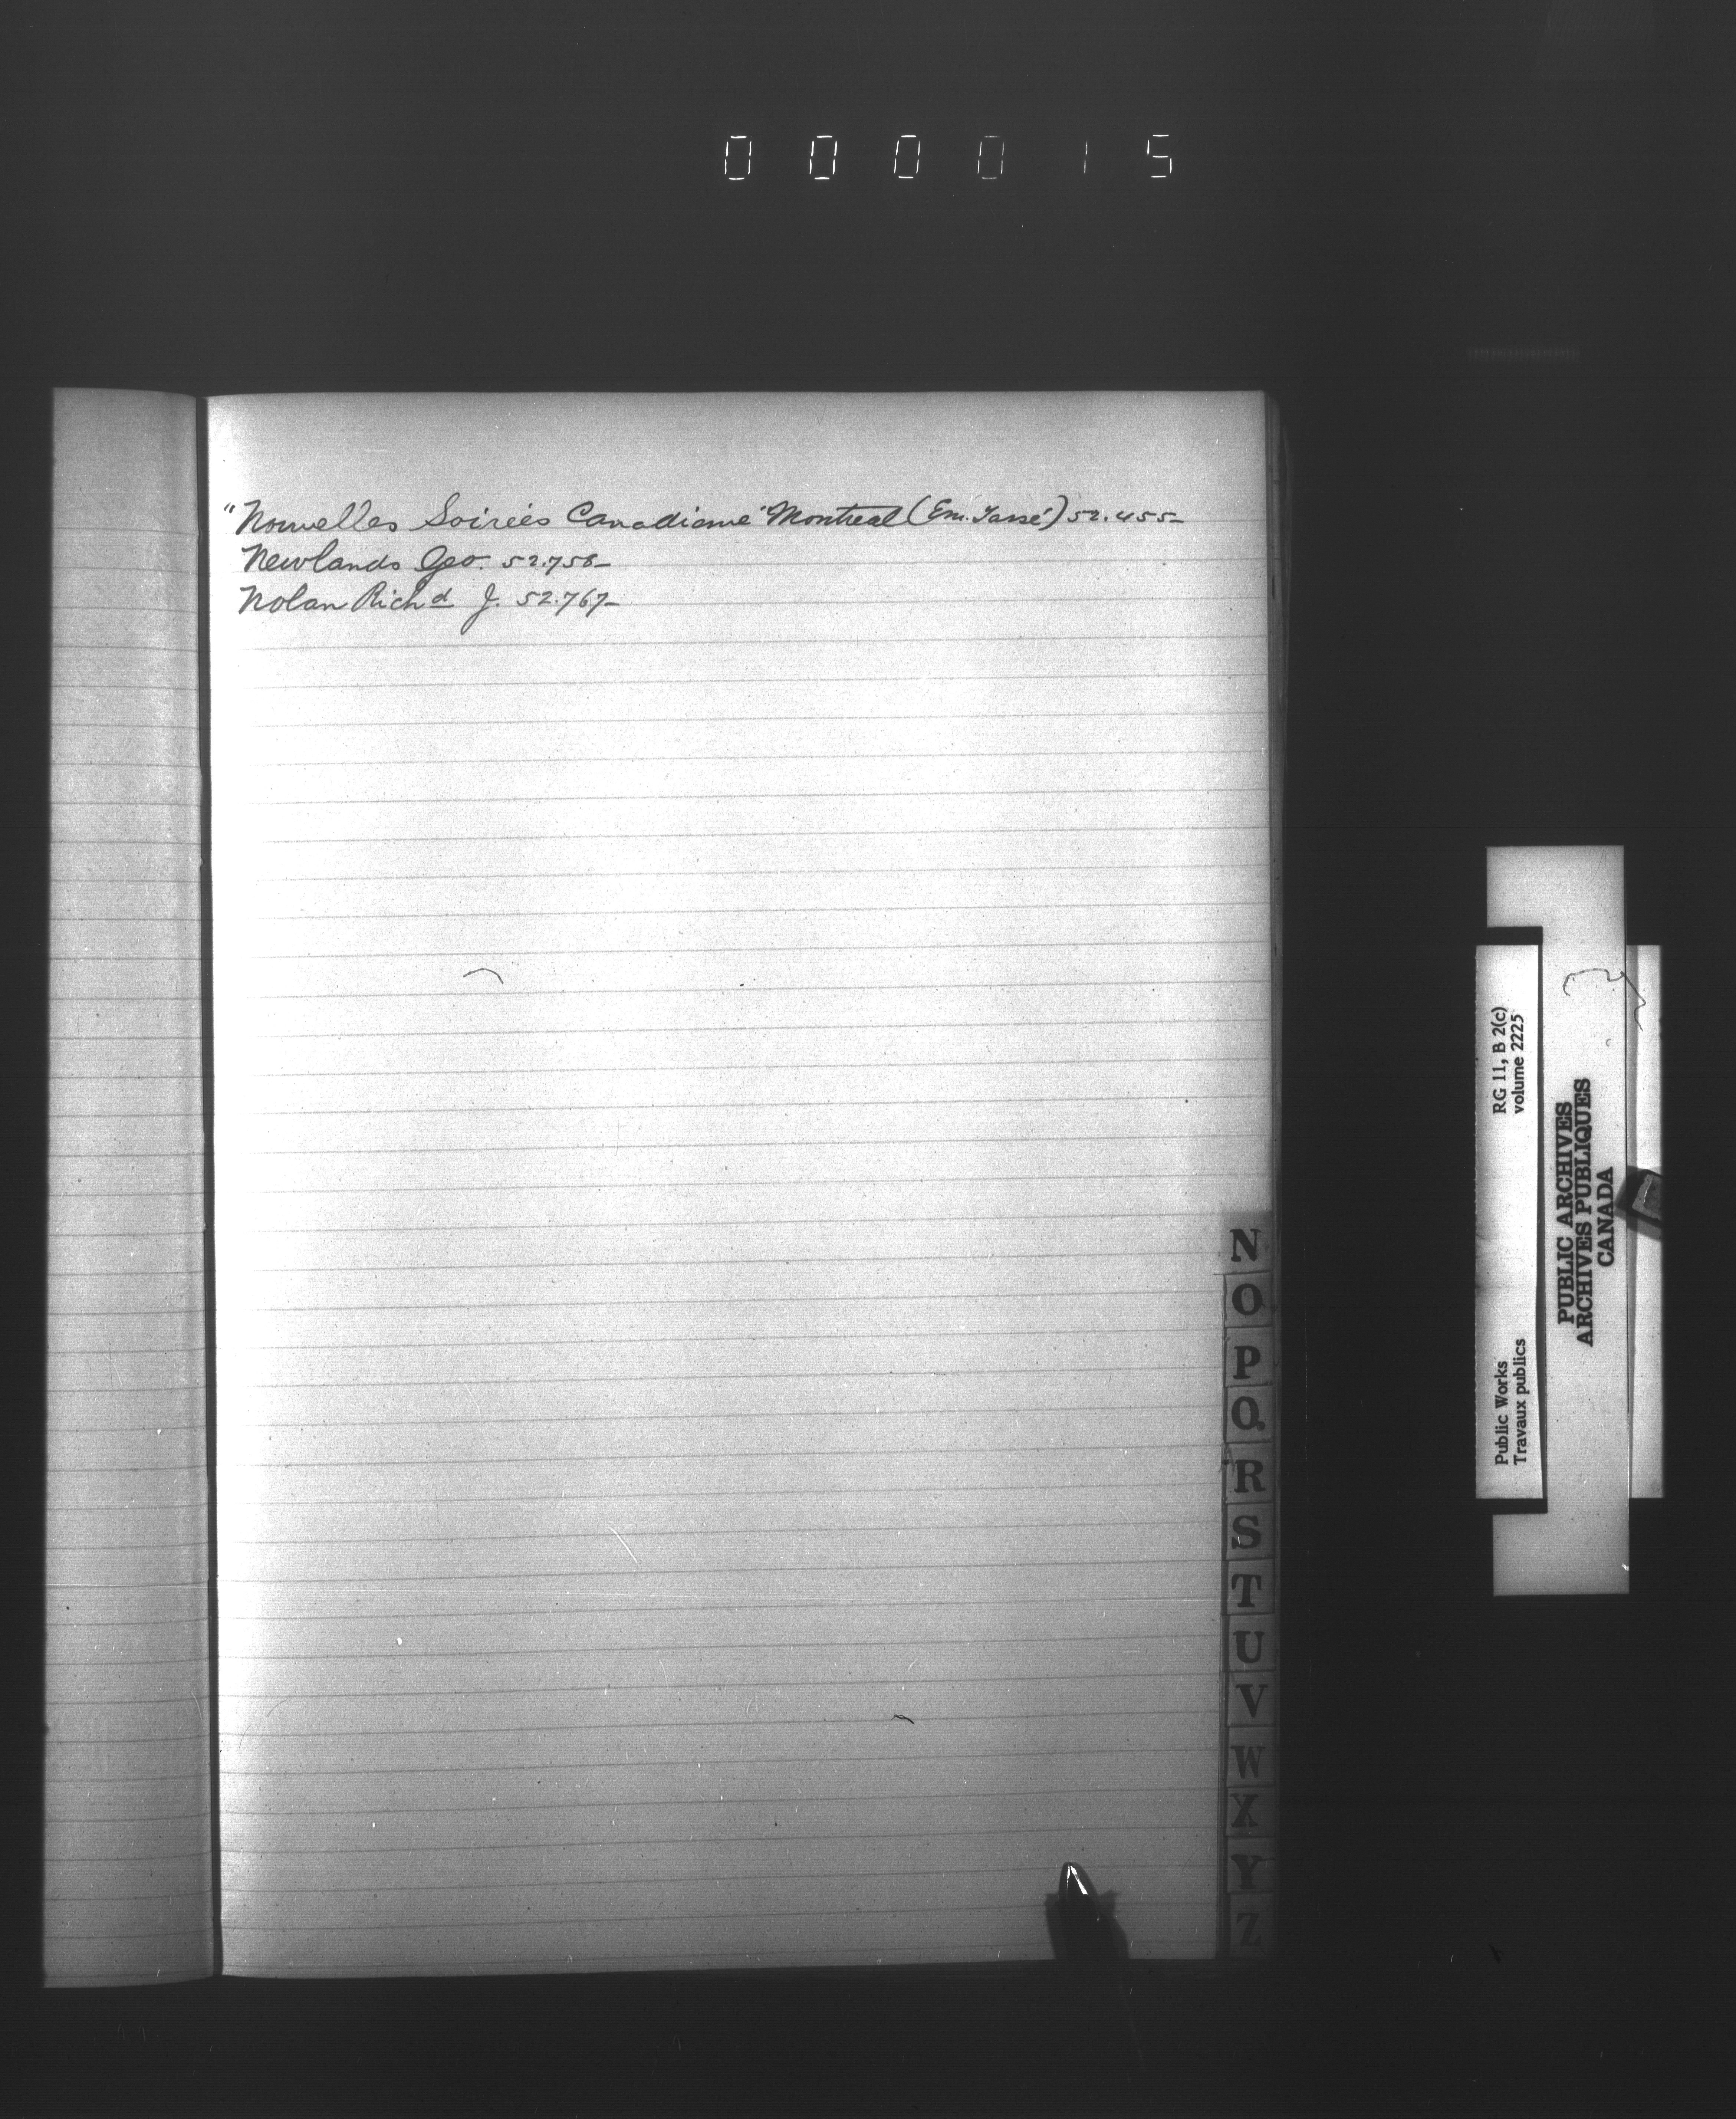 000015
"Nouvelles Soireés Canadienne" Montreal (Em. Tassé) 52.455-
Newlands Geo. 52.758-
Nolan Richd J. 52.767-
N
O
P
Q
R
S
T
U
V
W
X
Y
Z
RG 11, B 2(c)
volume 2225
Public Works
Travaux publics
PUBLIC ARCHIVES
ARCHIVES PUBLIQUES
CANADA